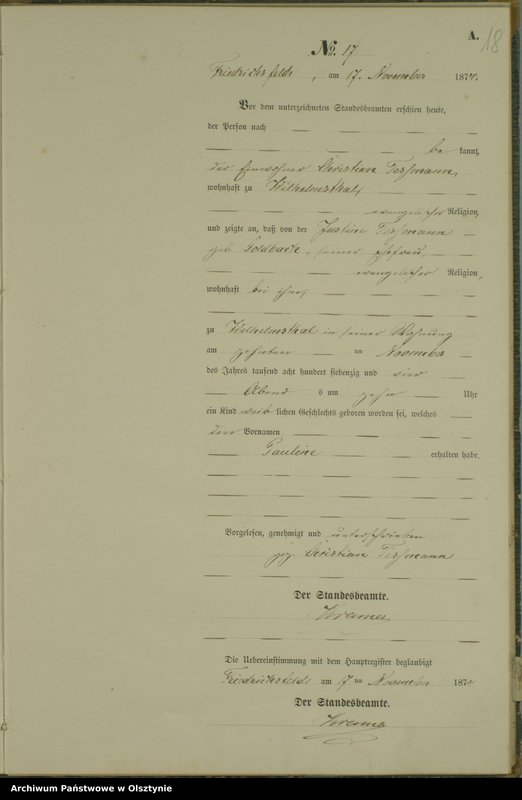 A.
18
No. 17
Friedrichsfelde, am 17. November 1874.
Vor dem unterzeichneten Standesbeamten erschien heute,
der Person nach
be kannt,
der Einwohner Christian Teßmann,
wohnhaft zu Wilhelmsthal,
evangelischer Religion
und zeigte an, daß von der Justine Teßmann
geb. , seiner Ehefrau,
evangelischer Religion,
wohnhaft bei ihm,
zu Wilhelmsthal in seiner Wohnung
am zehnten ten November
des Jahres tausend acht hundert siebenzig und vier
Abend s um zehn Uhr
ein Kind weib lichen Geschlechts geboren worden sei, welches
den Vornamen
Pauline erhalten habe.
Vorgelesen, genehmigt und unterschrieben
gez. Christian Teßmann
Der Standesbeamte.
Die Uebereinstimmung mit dem Hauptregister beglaubigt
Friedrichsfelde am 17 ten November 1874
Der Standesbeamte.
Archiwum Państwowe w Olsztynie